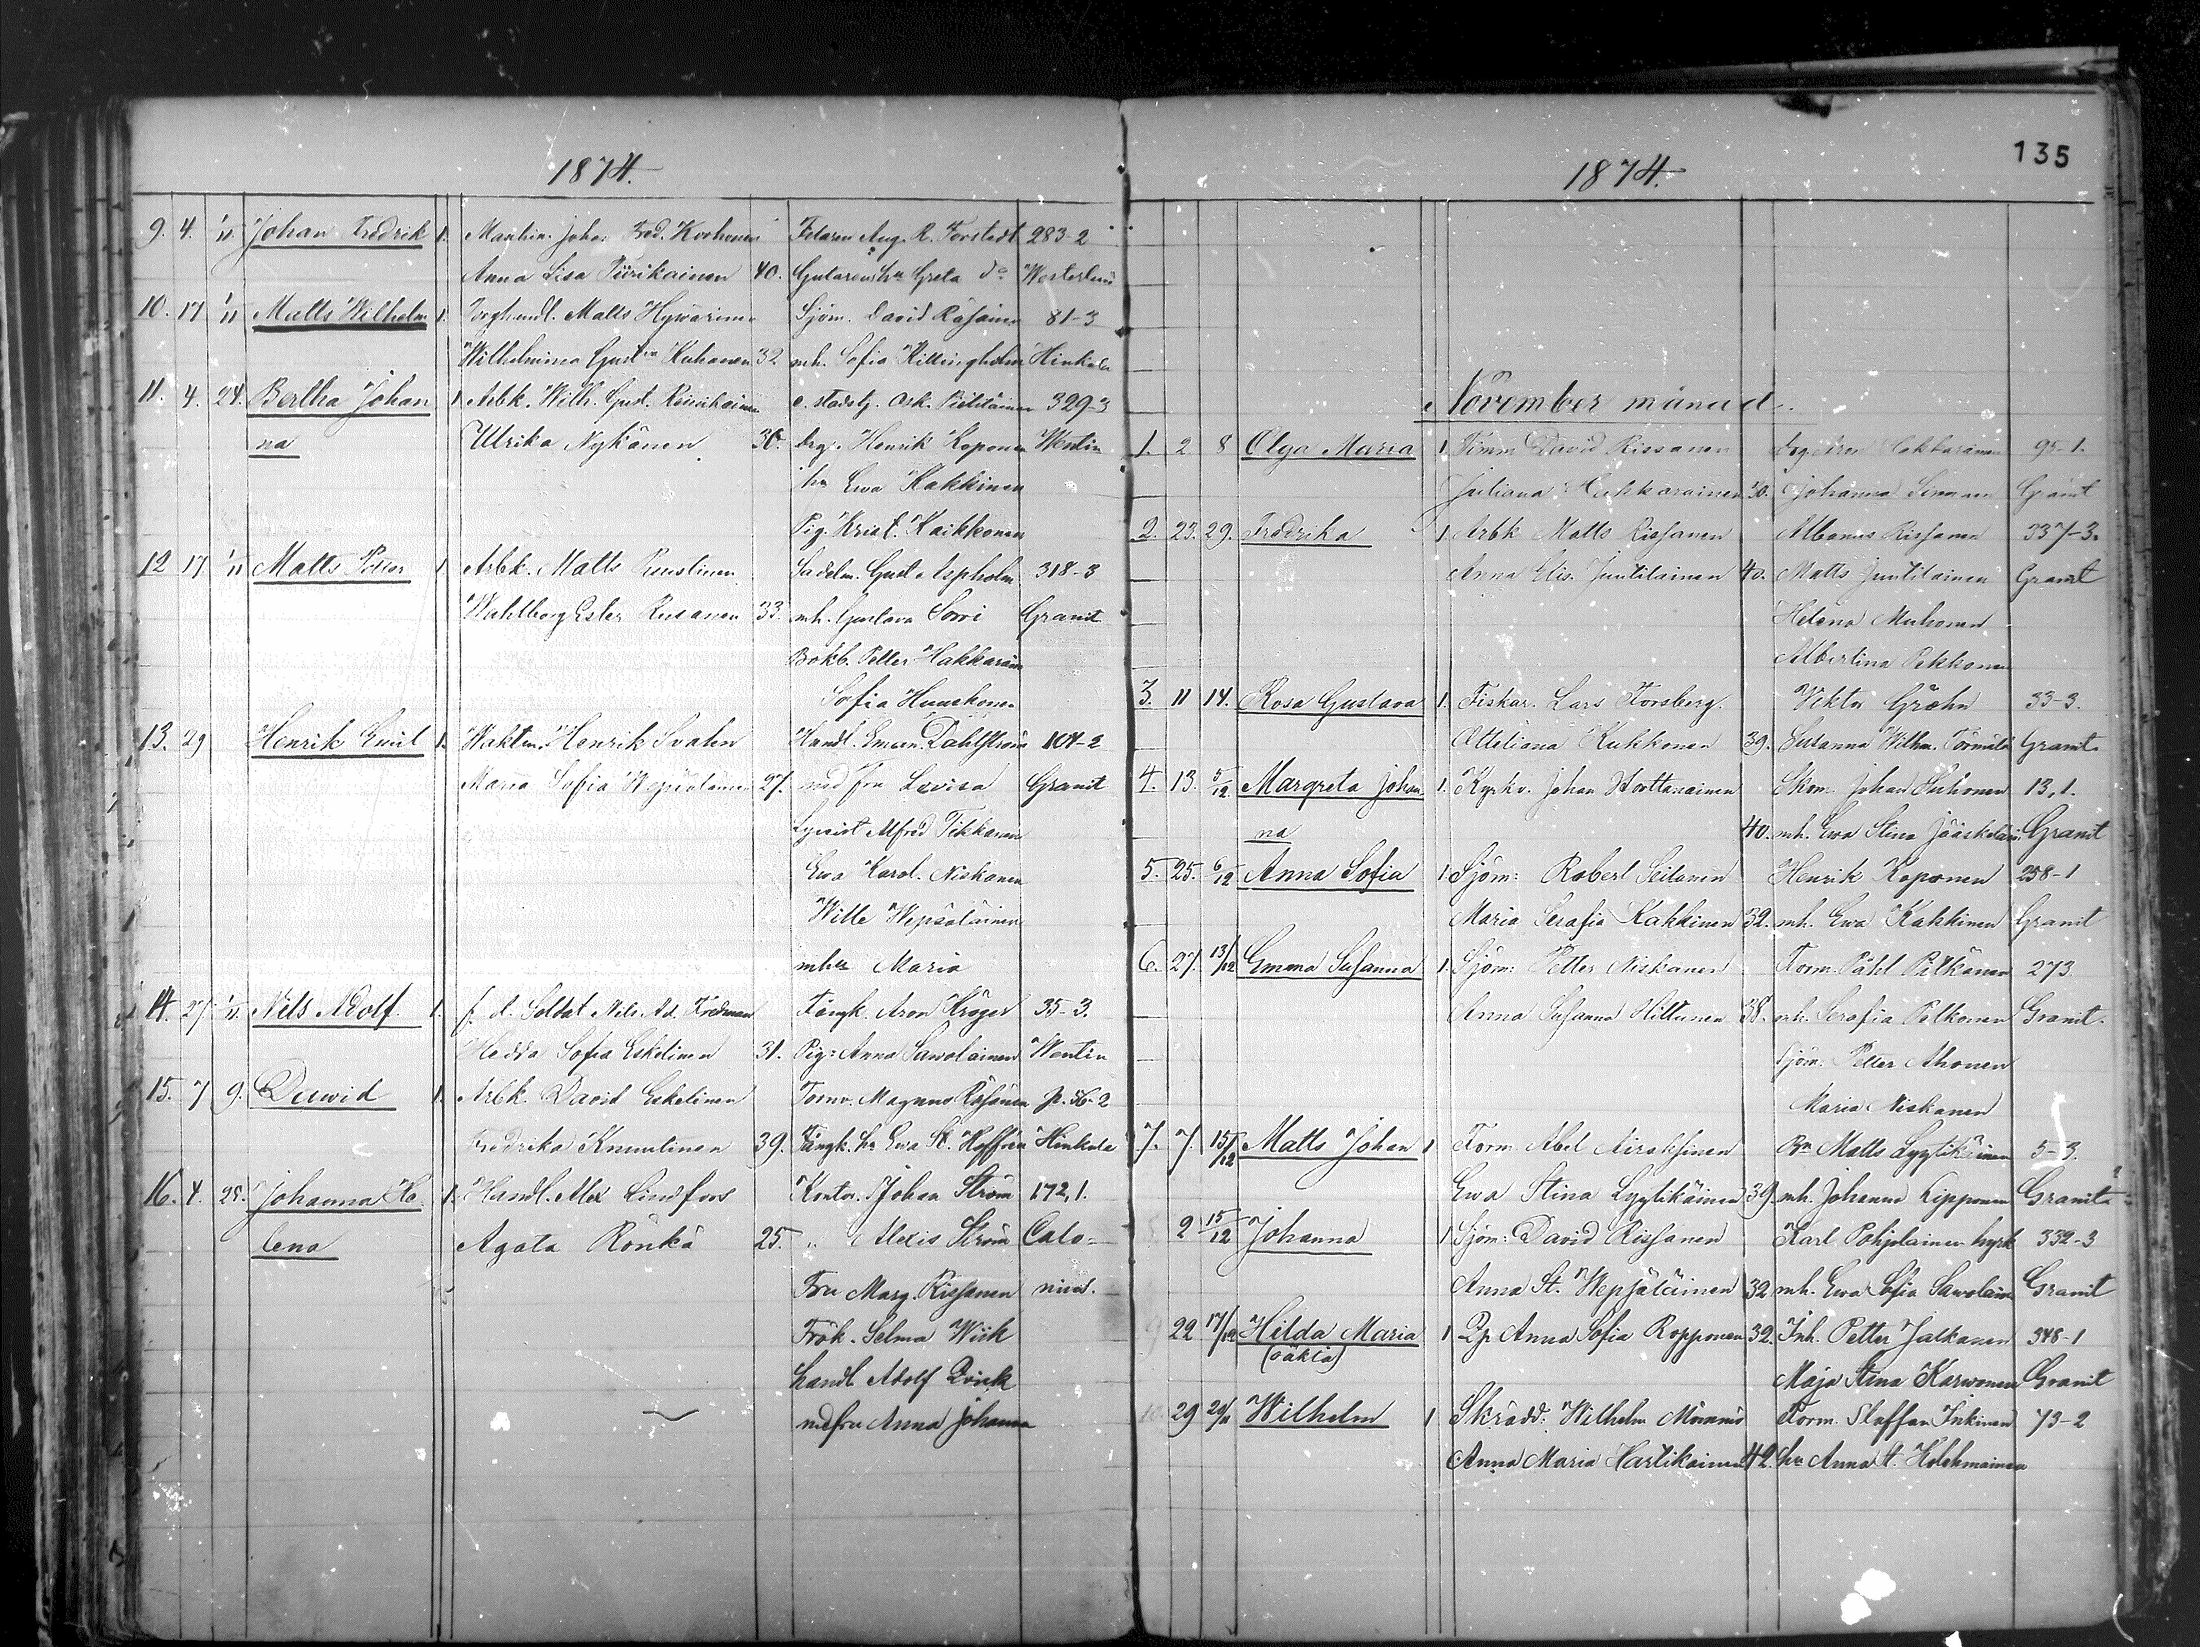 1874.
9. 4. 1/11 Johan Fredrik 1. Johan Fred. Korhonen Aug. R. Forstedt 283-2
Anna Lisa Piirikainen 40. Greta do Westerlund
10. 17 1/11 Matts Wilhelm 1. Matts Hywärinen Sjöm. David Räsänen 81-3
Wilhelmina Gust:na Kuhanen 32. mh. Sofia Killingholm Hinkula
11. 4. 24. Bertha Johan 1 Arbk. Wilh. Gust. Reinikainen Osk. Pietiläinen 329-3
na Ulrika Nykänen 36. drg. Henrik Koponen Wentin
hu Ewa Kakkinen
Pig. Krist. Kaikkonen
12 17 1/11 Matts Petter 1 Arbk. Matts Sadelm. Gust. Aspholm 318-3
Wahlborg Ester Rusanen 33. mh. Gustava Sorri Granit
Bokb. Petter Hakkarain
Sofia Huuskonen
13. 29 Henrik Emil 1. Waktm. Henrik Svahn Handl. Dahlström 104-2
Maria Sofia Wepsäläinen 27. med fru Lovisa Granit
Lyceist Alfred Tikkanen
Ewa Karol. Niskanen
Wille Wepsäläinen
Maria
14. 27 1/11 Nils Adolf. 1. f. d. Soldat Nils Ad. Fredman Fångk. Aron Kröger 35-3.
Hedda Sofia Eskelinen 31. Pig: Anna Sawolainen Wentin
15. 7 9. Dawid 1. Arbk. David Eskelinen Tornv. Magnus Räsänen p. 56-2
Fredrika Knuutinen 39. Fångk. hu Ewa St. Hoffrén Hinkula
16. 4. 28. Johanna He 1. Handl. Alex Lindfors Kontor. Johan Ström 172,1.
lena Agata Rönkä 25. " Alexis Ström Calo-
Fru Marg. Rissanen nius.
Frök. Selma Wiik
handl. Adolf Zvick
mdfru Anna Johanna
135
1874.
November månad.
1. 2 8 Olga Maria 1 Timm David Rissanen Hakkarainen 95-1.
Juliana Hakkarainen 30. Johanna Granit
2. 23. 29. Fredrika 1 Arbk Matts Rissanen Albanus Rissanen 337-3.
Anna Elis. Juutilainen 40. Matts Juutilainen Granit
Helena Muhonen
Albertina Pekkonen
3. 11 14. Rosa Gustava 1. Fiskar. Lars Forsberg. Viktor Gröhn 33-3.
Ottiliana Kukkonen 39. Susanna Wilhm. Törmälä Granit
4. 13. 5/12 Margreta Johan 1. Kyrkv. Johan Wouttanainen Skom. Johan Suhonen 13,1.
na 40. mh. Ewa Stina Jääskeläin Granit
5. 25. 6/12 Anna Sofia 1. Sjöm: Robert Seilanen Henrik Koponen 258-1
Maria Serafia Kakkinen 32. mh. Ewa Kakkinen Granit
6. 27. 13/12 Emma Susanna 1. Sjöm: Petter Niskanen Torm. Påhl Pitkänen 273
Anna Susanna Hiltunen 38. mh. Serafia Pelkonen Granit
Sjöm: Petter Ahonen
Maria Niskanen
7. 7. 15/12 Matts Johan 1 Torm Abel Airaksinen Bn Matts Lyytikäinen 5-3.
Ewa Stina Lyytikäinen 39. mh. Johanna Lipponen Granit
2 15/12 Johanna 1 Sjöm: David Rissanen Karl Pohjolainen 332-3
Anna St. Wepsäläinen 32 mh. Ewa Sofia Sawolain Granit
9 22 17/12 Hilda Maria 1 Anna Sofia Ropponen 32. Inh. Petter Jalkanen 348-1
(oäkta) Maja Stina Karwonen Granit
10 29 29/11 Wilhelm 1 Skrädd: Wilhelm Mömmö Torm. Staffan Inkinen 73-2
Anna Maria Hartikainen 42. hu Anna St. Kolehmainen